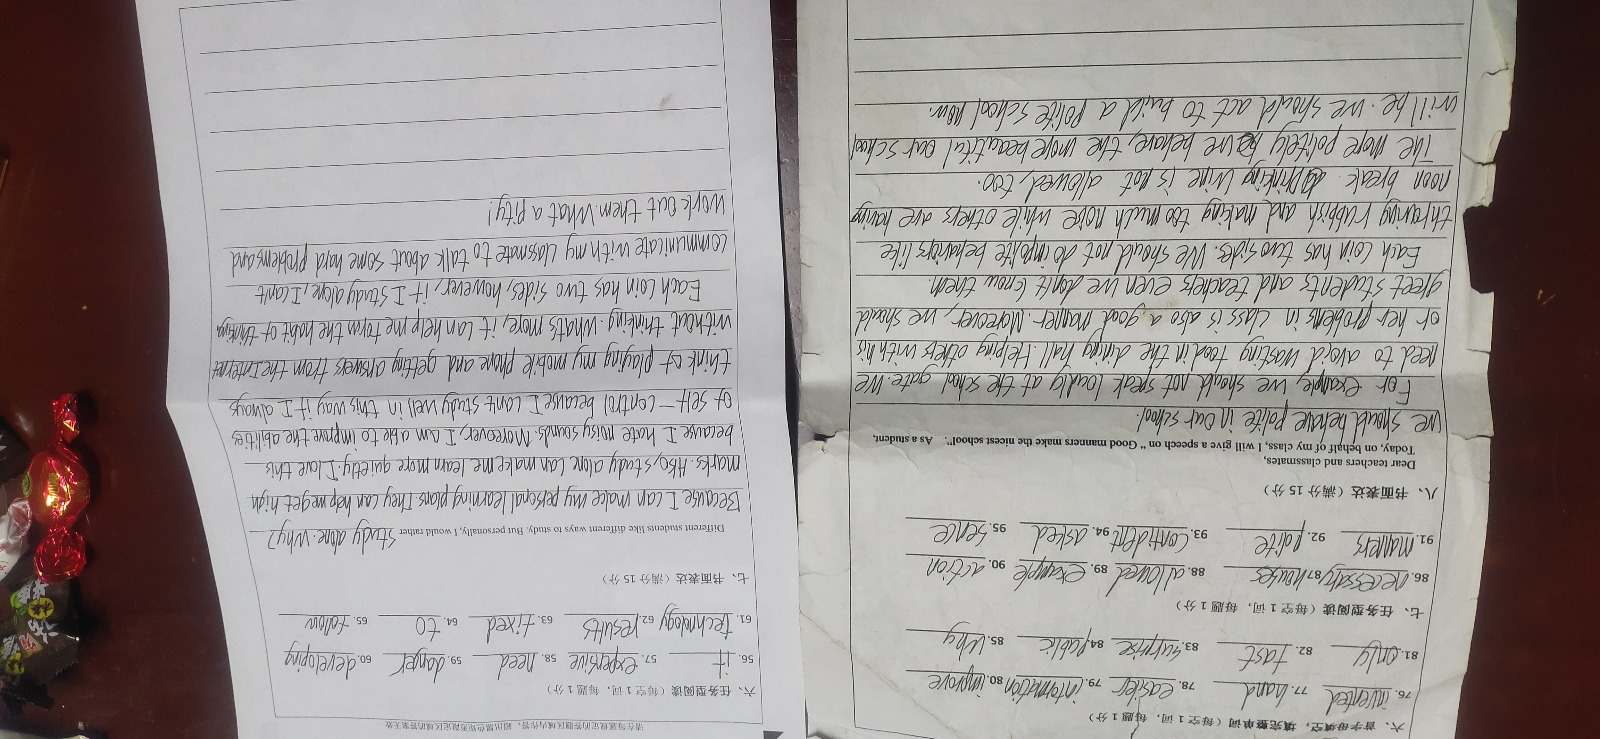 六、首字母填空，填完整单词（每空1词，每题1分）
76. invented 77. hand 78. easier 79. information 80. improve
81. only 82. fast 83. surprise 84. public 85. why
七、任务型阅读（每空1词，每题1分）
86. necessary 87 houses 88. allowed 89. example 90. action
91. manners 92. polite 93. confident 94. asked 95. sence
八、书面表达（满分15分）
Dear teachers and classmates,
Today, on behalf of my class, I will give a speech on " Good manners make the nicest school". As a student,
we should behave polite in our school.
For example, we should not speak loudly at the school gate. we
need to avoid wasting food in the dining hall. Helping others with his
or her problems in class is also a good manner. Moreover, we should
greet students and teachers even we don't know them.
Each coin has two sides. We should not do impolite behaviors like
thrwing rubbish and making too much noise while others are having
noon break. Drinking wine is not allowed, too.
The more politely we behave, the more beautiful our school
will be. we should act to build a polite school now.
请在每题规定的答题区域内作答，超出黑色矩形限定区域的答案无效
六、任务型阅读（每空1词，每题1分）
56. it 57. expensive 58. need 59. danger 60. developing
61. technology 62. results 63. fixed 64. to 65. follow
七、书面表达（满分15分）
Different students like different ways to study. But personally, I would rather study alone. Why?
Because I can make my personal learning plans. They can help me get high
marks. Also, study alone can make me learn more quietly. I love this
because I hate noisy sounds. Moreover, I am able to improve the abilities
of self-control because I can't study well in this way if I always
think of playing my mobile phone and getting answers from the Internet
without thinking. What's more, it can help me form the habit of thinking
Each coin has two sides, however, if I study alone, I can't
communicate with my classmate to talk about some hard problems and
work out them. What a pity!